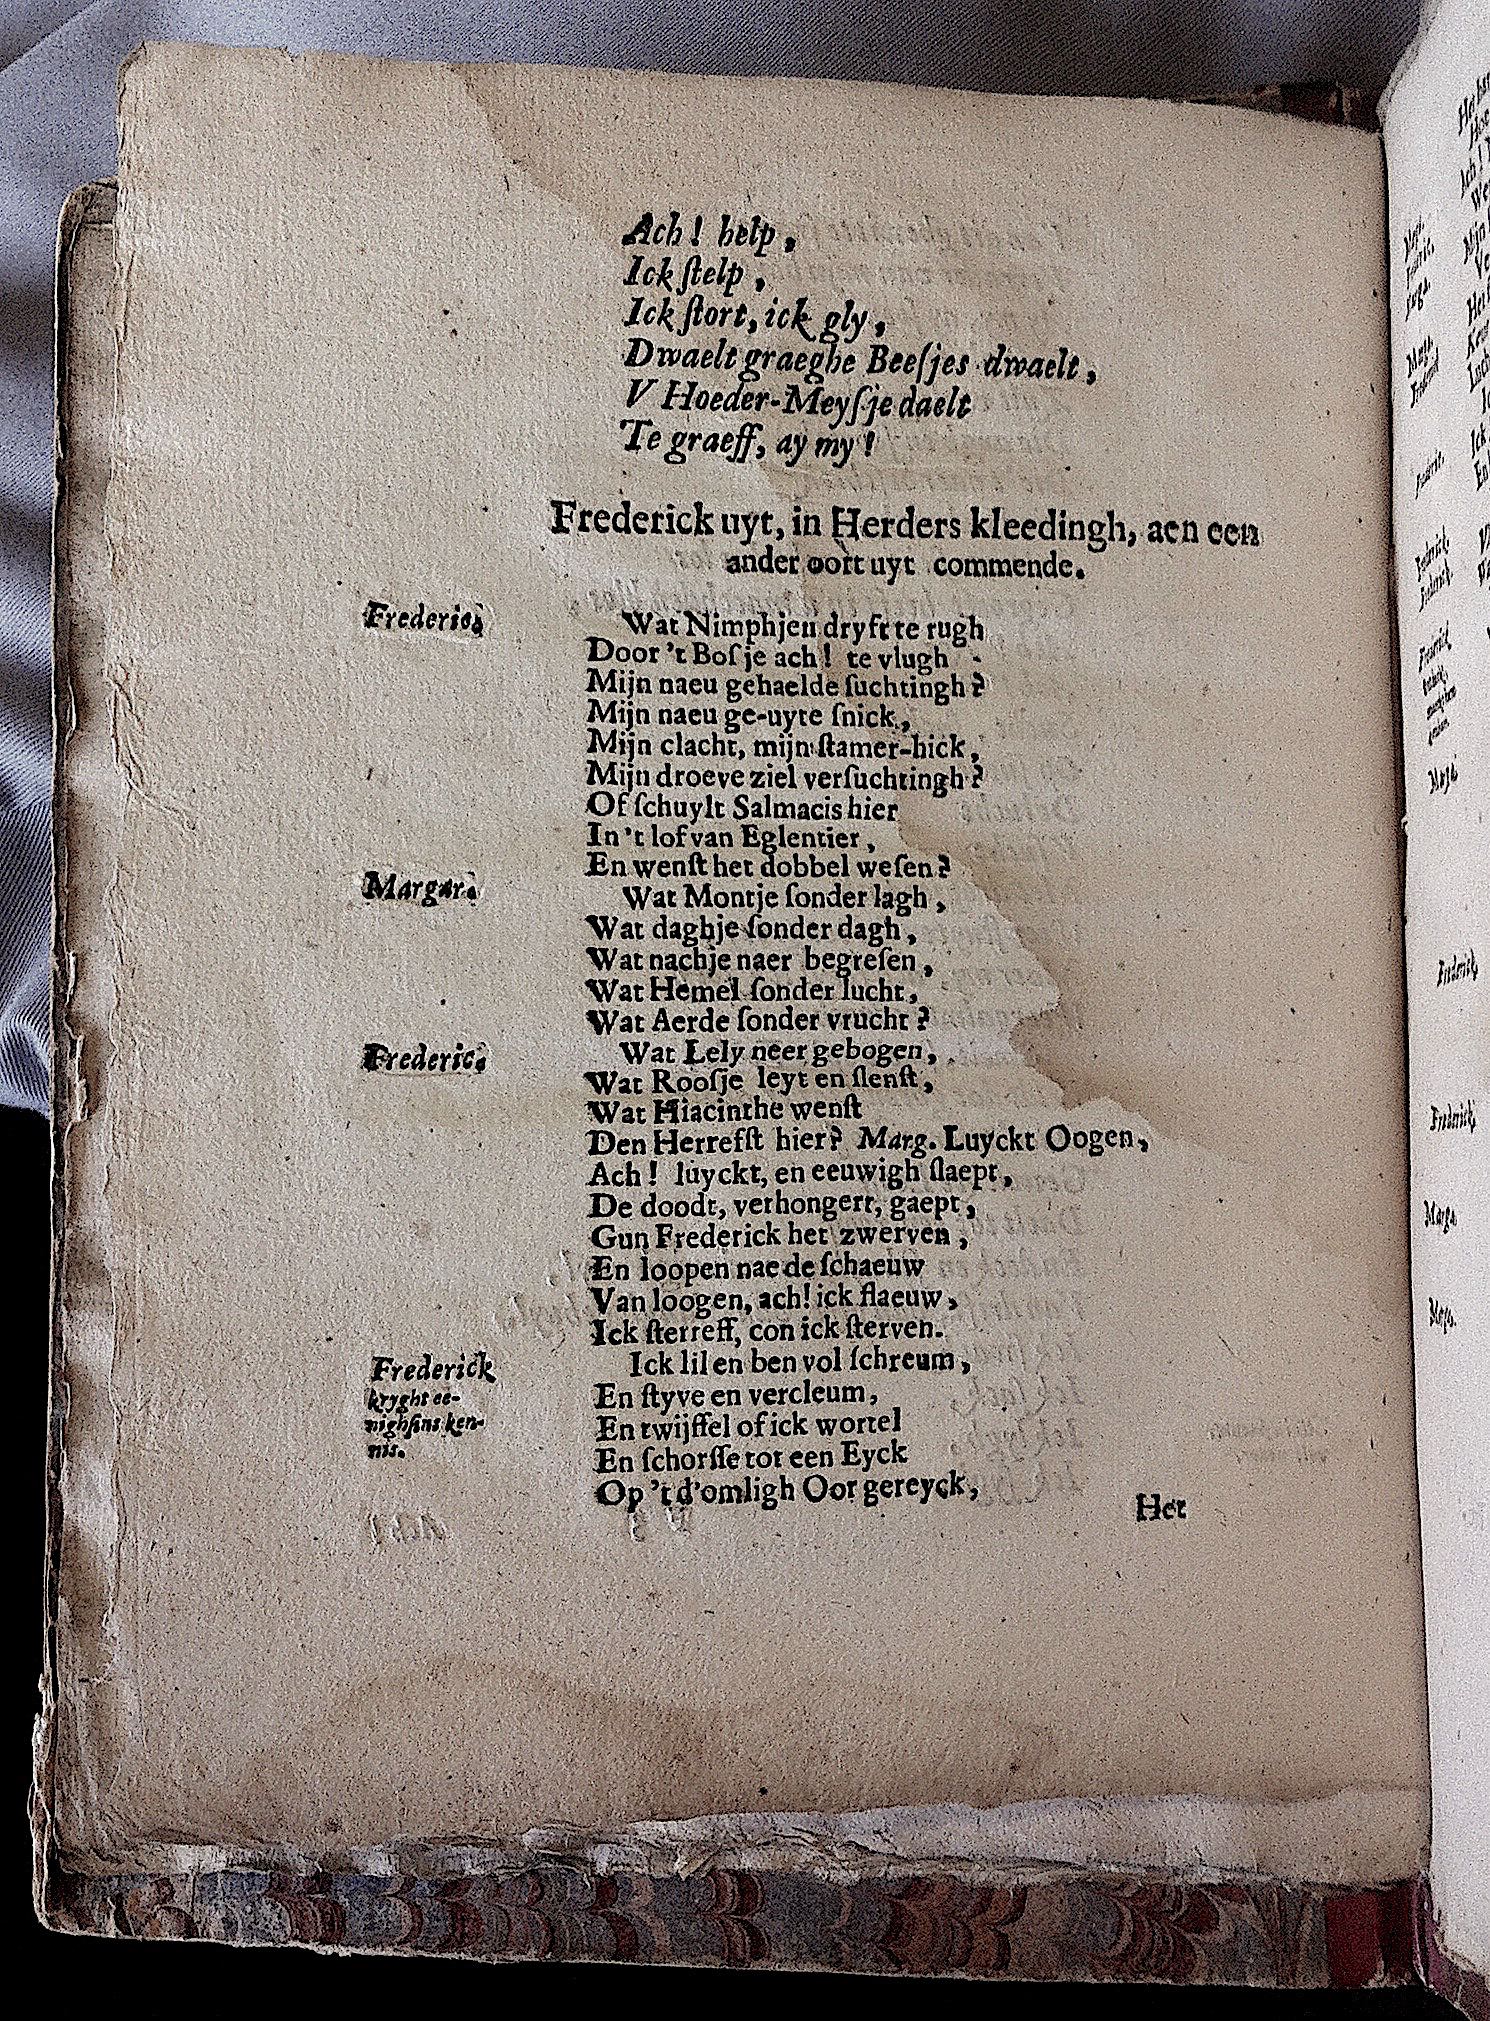 Ach! help,
Ick ſtelp,
Ick ſtort, ick gly,
Dwaelt graeghe Beeſjes dwaelt,
V Hoeder-Meyſje daelt
Te graeff, ay my!
Frederick uyt, in Herders kleedingh, aen een
ander oort uyt commende.
Frederic. Wat Nimphjen dryft te rugh
Door 't Boſje ach! te vlugh
Mijn naeu gehaelde ſuchtingh?
Mijn naeu ge-uyte ſnick,
Mijn clacht, mijn ſtamer-hick,
Mijn droeve ziel verſuchtingh?
Of ſchuylt Salmacis hier
In 't lof van Eglentier,
En wenſt het dobbel weſen?
Margar. Wat Montje ſonder lagh,
Wat daghje ſonder dagh,
Wat nachje naer begreſen,
Wat Hemel ſonder lucht,
Wat Aerde ſonder vrucht?
Frederic. Wat Lely neer gebogen,
Wat Rooſje leyt en ſlenſt,
Wat Hiacinthe wenſt
Den Herrefſt hier? Marg. Luyckt Oogen,
Ach! luyckt, en eeuwigh ſlaept,
De doodt, verhongert, gaept,
Gun Frederick het zwerven,
En loopen nae de ſchaeuw
Van loogen, ach! ick flaeuw,
Ick ſterreff, con ick ſterven.
Frederick Ick lil en ben vol ſchreum,
kryght ee- En ſtyve en vercleum,
nighſins ken- En twijffel of ick wortel
nis. En ſchorſſe tot een Eyck
Op 't d'omligh Oor gereyck,
Het